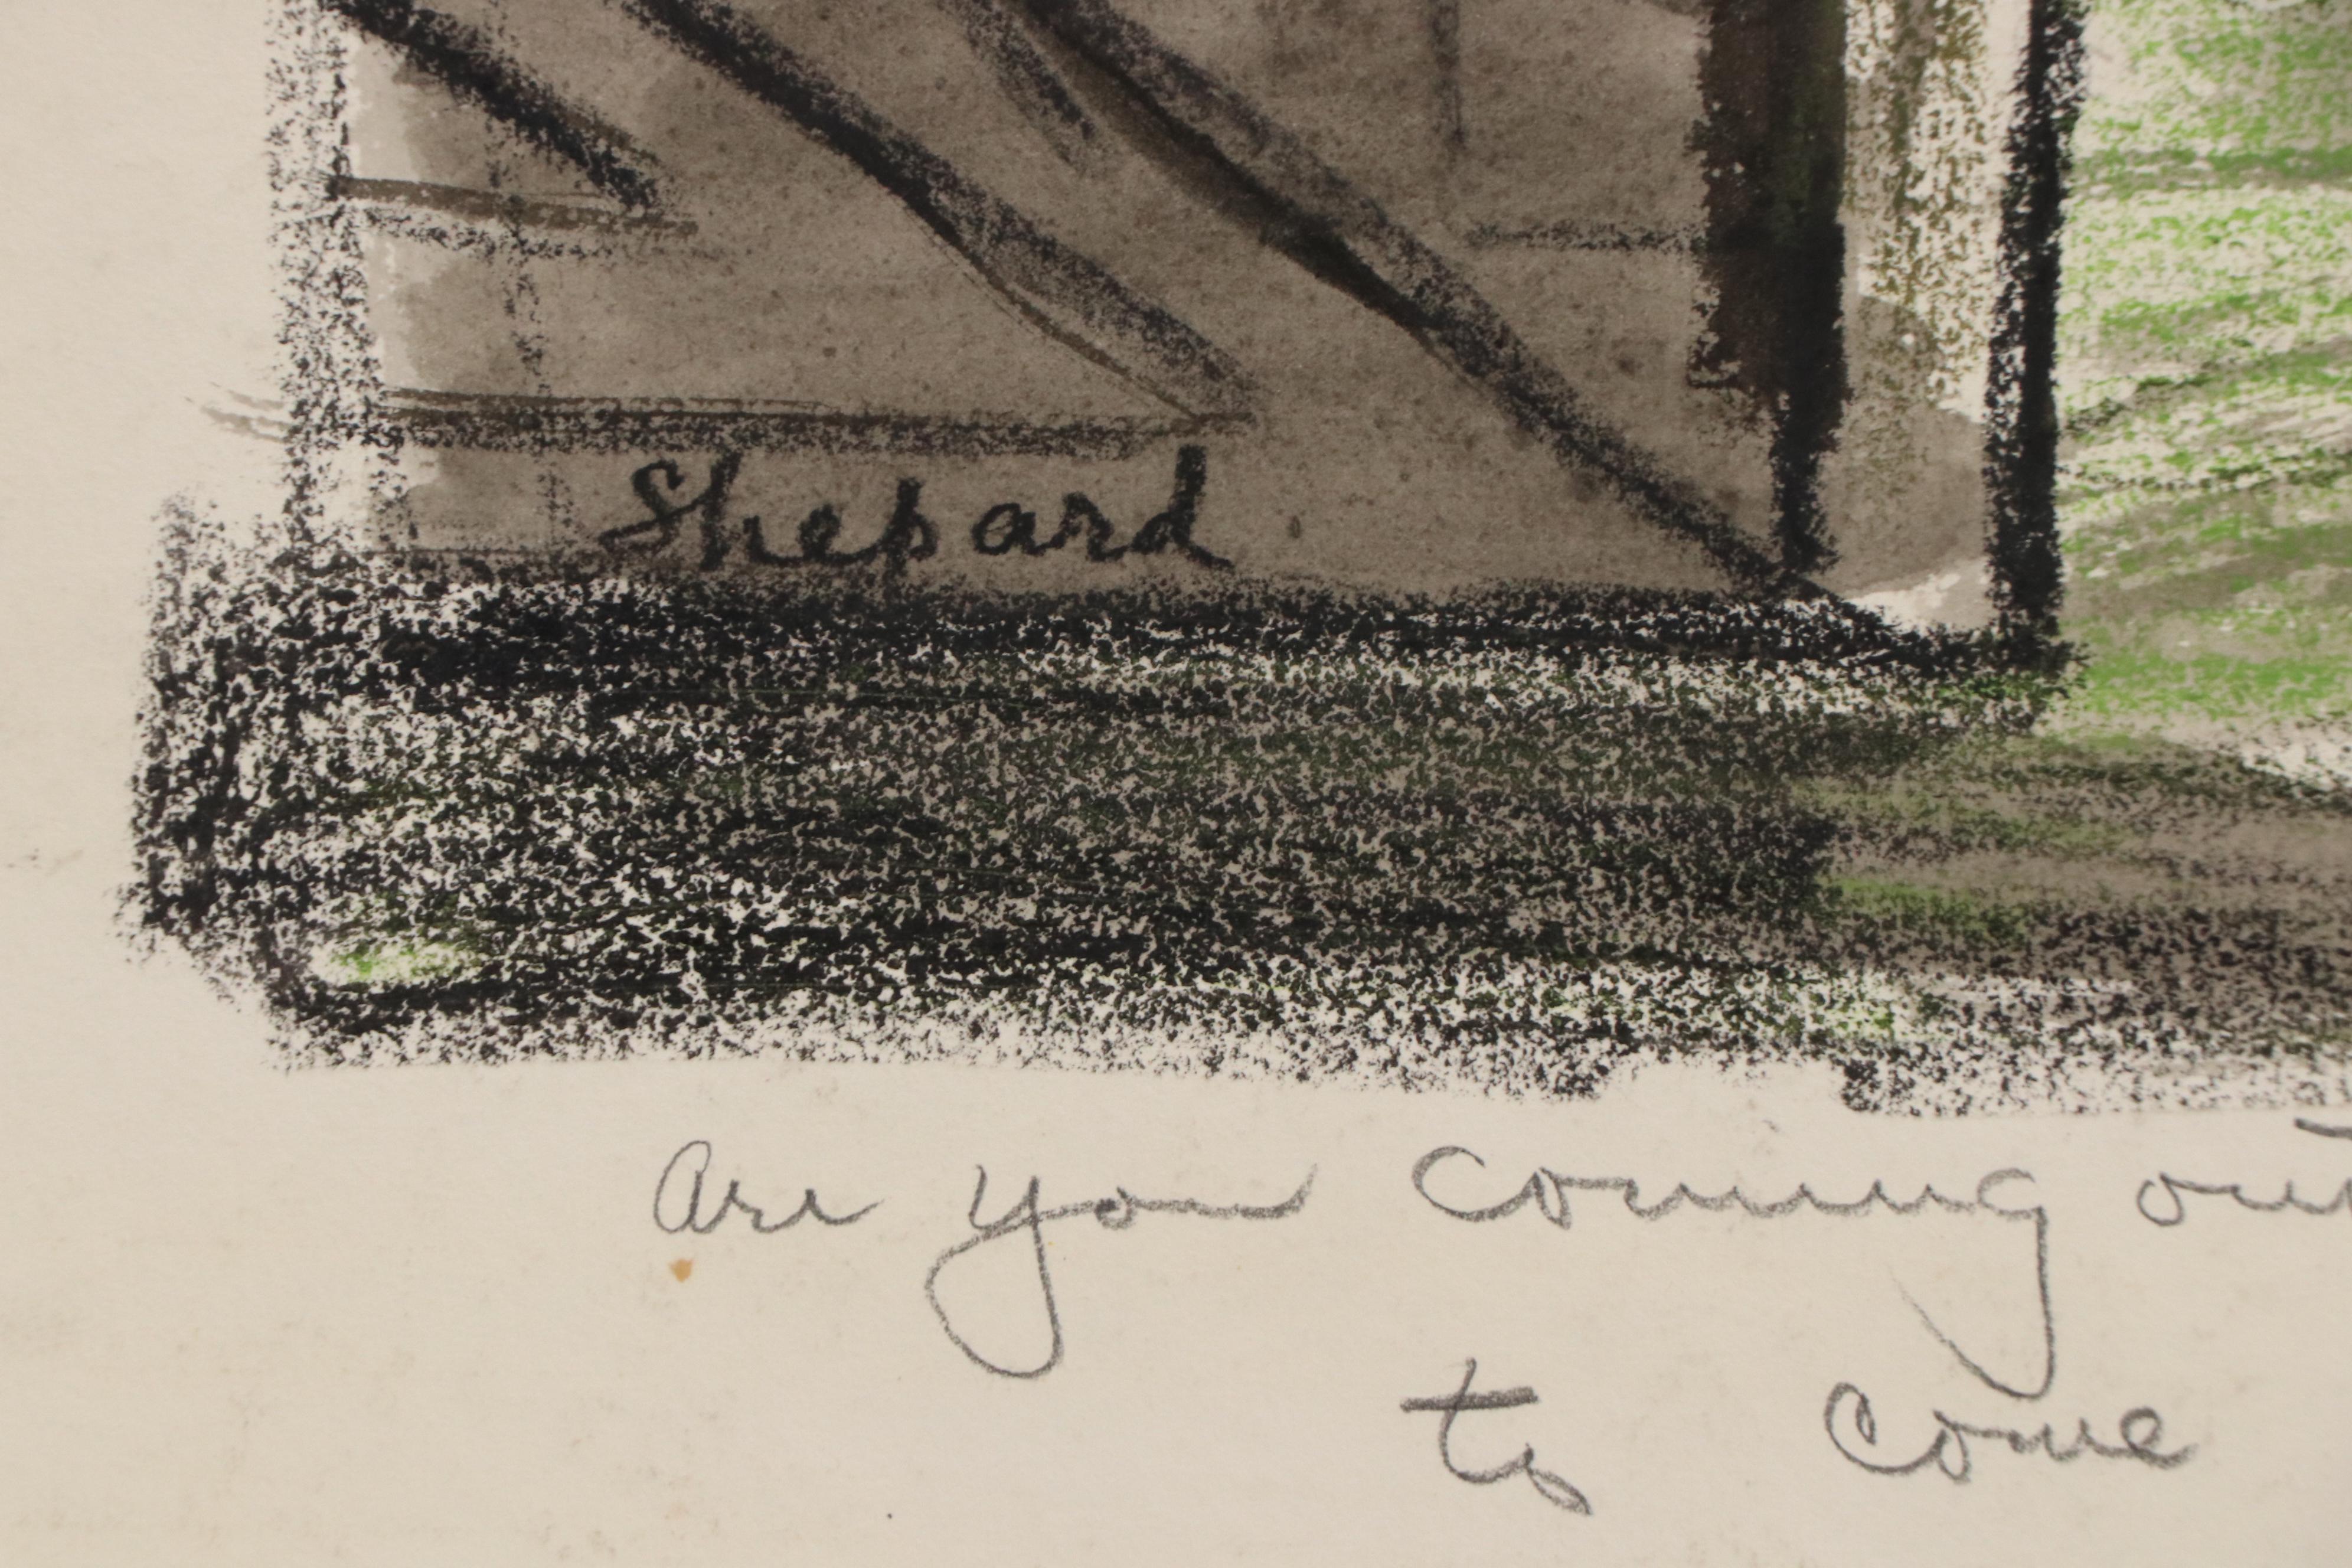 Shepard
Are you coming out
to come